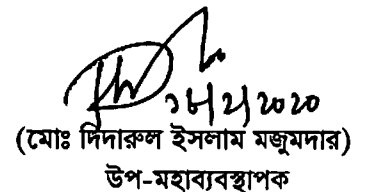 ১৮/২/২০২০
(মোঃ দিদারুল ইসলাম মজুমদার)
উপ-মহাব্যবস্থাপক